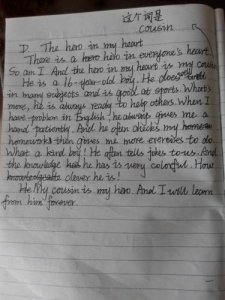 这个词是
cousin
D. The hero in my heart
There is a hero in everyone's heart.
So am I. And the hero in my heart is my cousin.
He is a 16-year-old boy. He does well
in many subjects and is good at sports. What's
more, he is always ready to help others. When I
have problem in English, he always gives me a
hand patiently. And he often checks my
homeworks then gives me more exercises to do.
What a kind boy! He often tells jokes to us. And
the knowledge he has is very colorful. How
clever he is!
My cousin is my hero. And I will learn
from him forever.